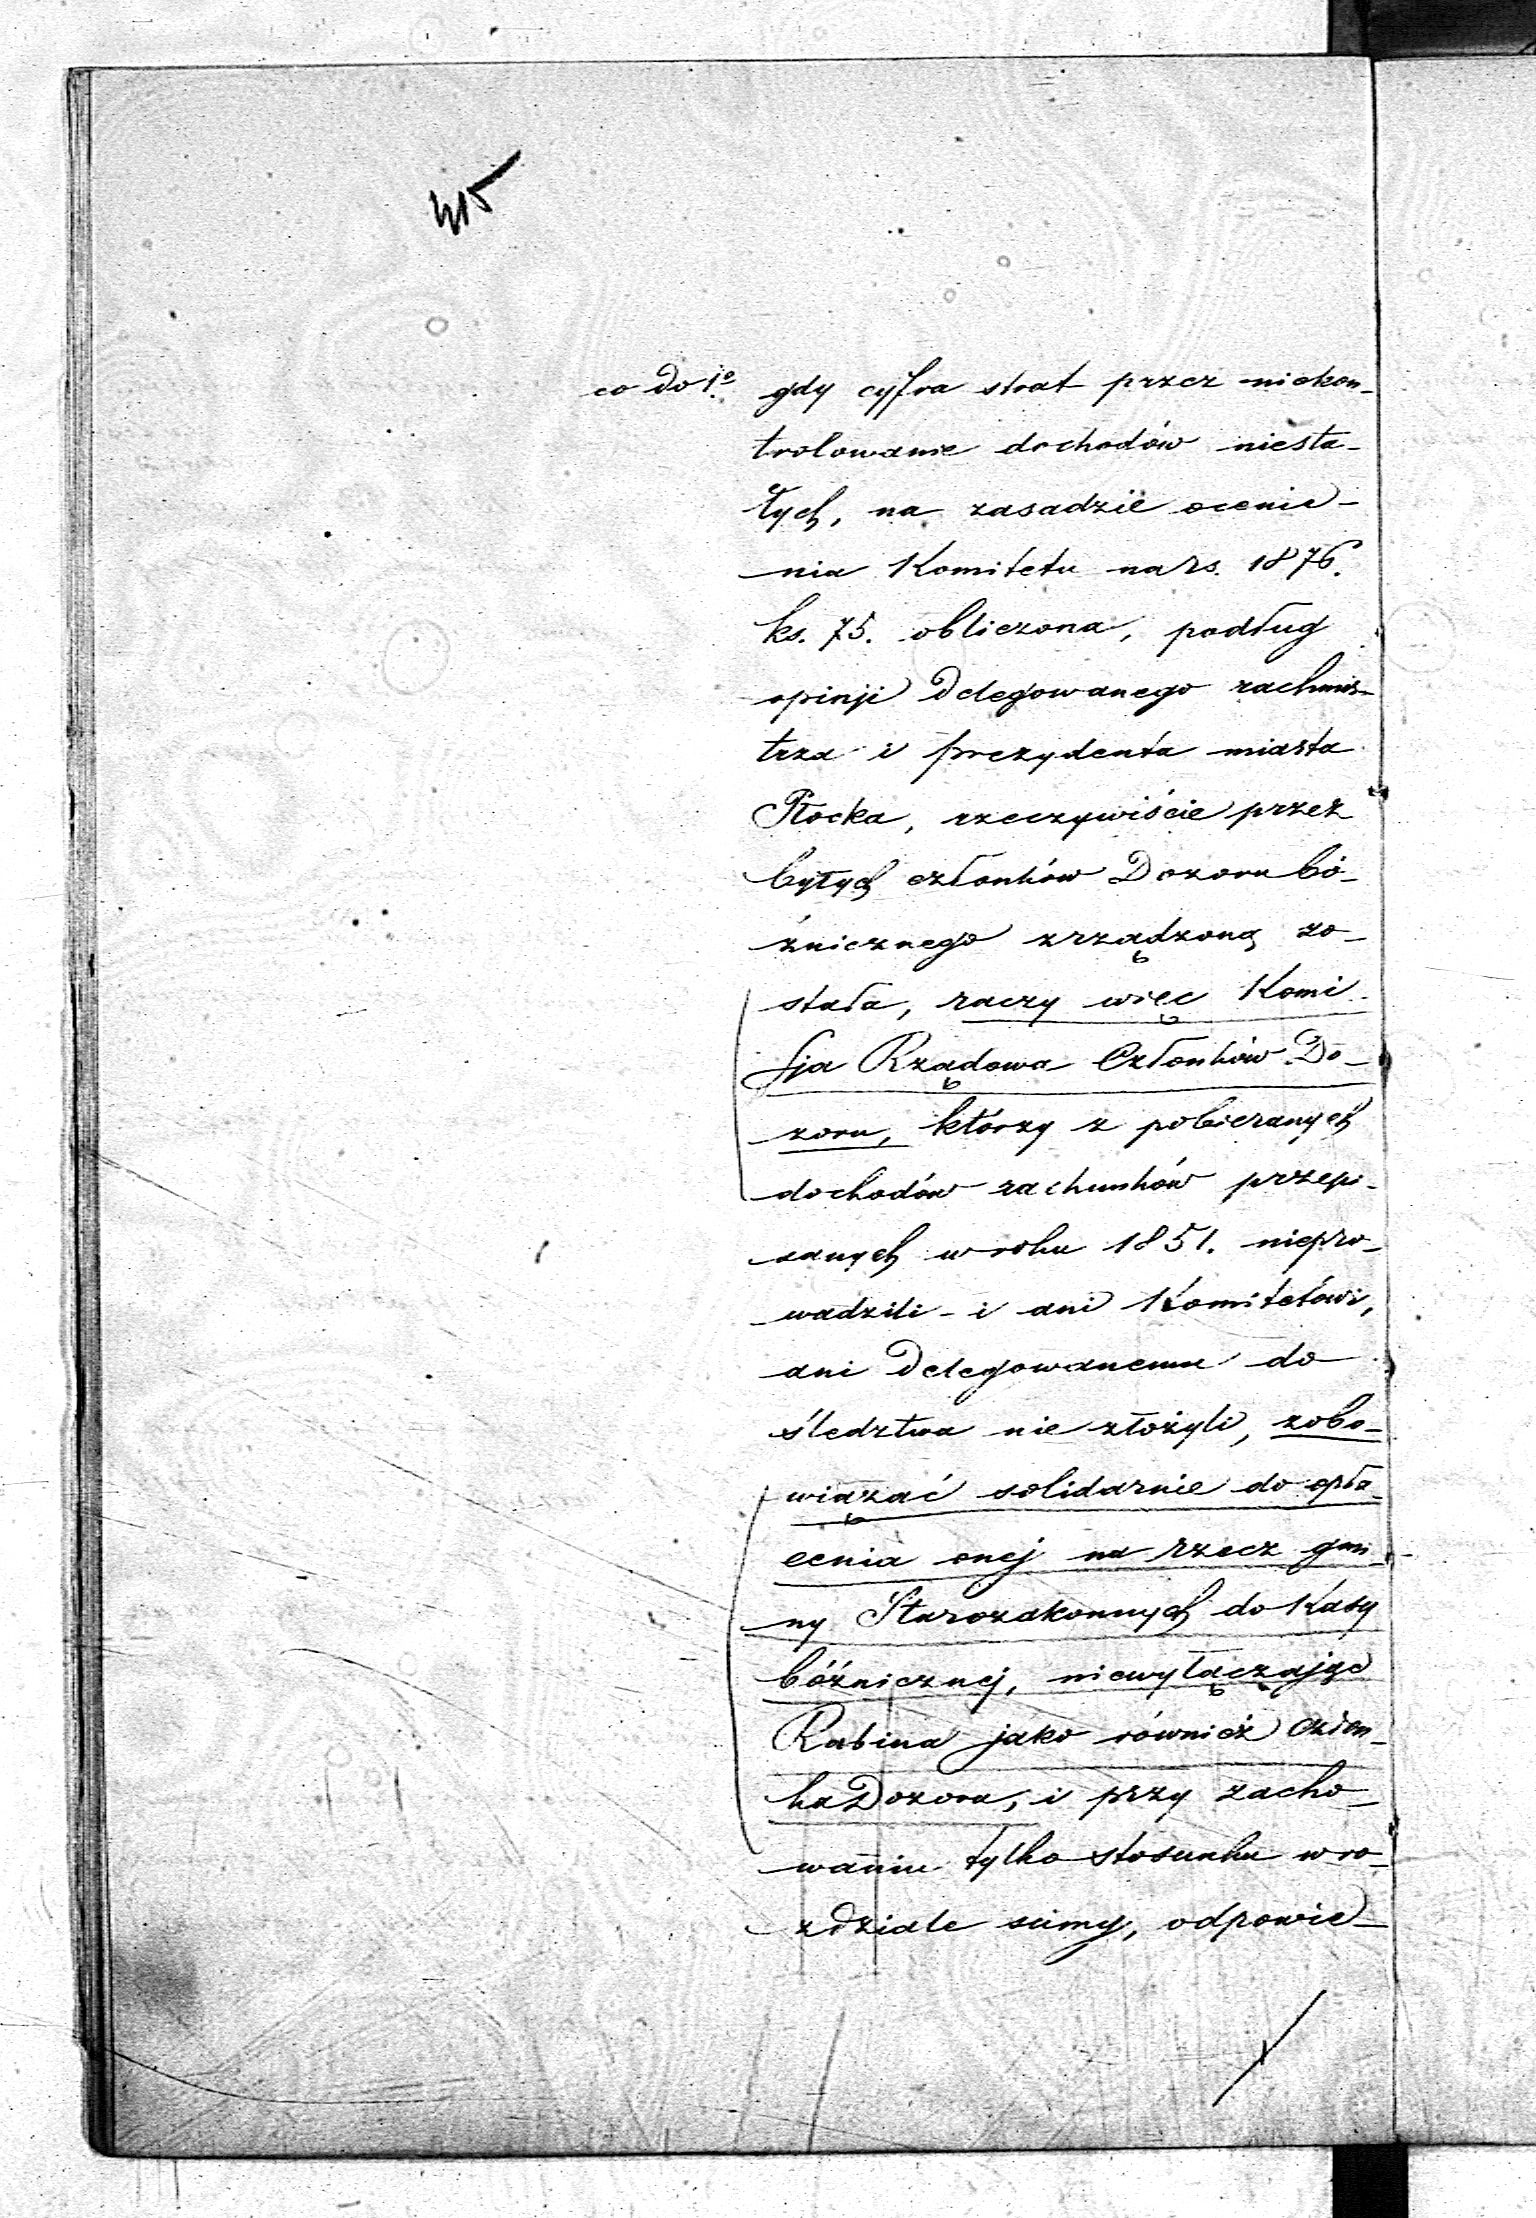 415
co do 1o gdy cyfra strat przez niekon-
trolowanie dochodów niesta-
łych, na zasadzie ocenie-
nia Komitetu na rs. 1876.
ks. 75. obliczona, podług
opinji Delegowanego rachmis-
trza i prezydenta miasta
Płocka, rzeczywiście przez
byłych członków Dozoru bó-
źnicznego zrządzoną zo-
stała, raczy więc Komi-
sja Rządowa Członków Do-
zoru, którzy z pobieranych
dochodów rachunków przepi-
sanych w roku 1851. niepro-
wadzili - i ani Komitetowi,
ani Delegowanemu do
śledztwa nie złożyli, zobo-
wiązać solidarnie do opła-
cenia onej na rzecz gmi-
ny Starozakonnych do Kasy
bóźnicznej, niewyłączając
Rabina jako również Człon-
ka Dozoru, i przy zacho-
waniu tylko stosunku w ro-
zdziale sumy, odpowie-